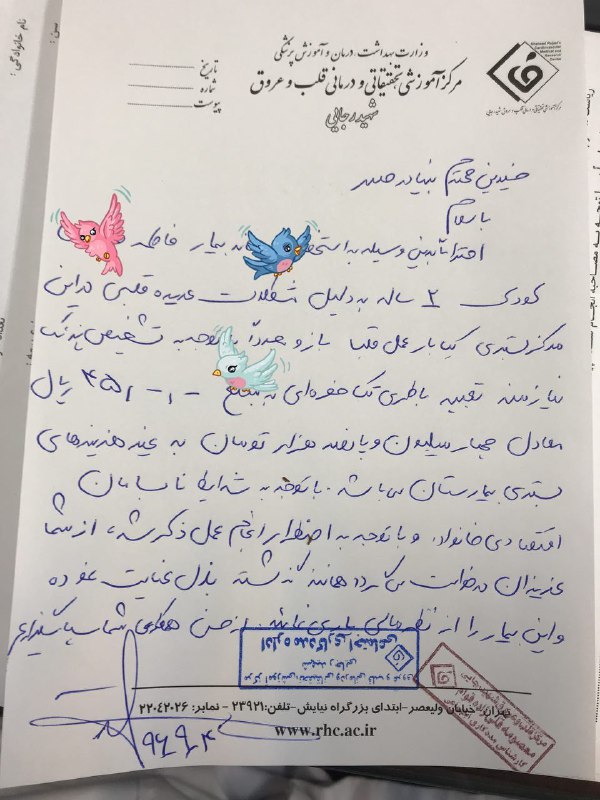 نام خانوادگی:
سن:
وزارت بهداشت، درمان و آموزش پزشکی
مرکز آموزشی، تحقیقاتی و درمانی قلب و عروق
شهید رجایی
تاریخ
شماره
پیوست
مرکز آموزشی، تحقیقاتی و درمانی قلب و عروق شهید رجایی
محترم بنیاد
با سلام
احتراماً بدین وسیله به بیمار فاطمه
کودک ۲ ساله به دلیل مشکلات عدیده قلبی در این
مرکز بستری یکبار عمل قلب باز و مجدداً با توجه به تشخیص پزشک
نیازمند تعبیه باطری تک حفره‌ای به مبلغ ۴۵/۰۰۰/۰۰۰ ریال
معادل چهار میلیون و پانصد هزار تومان به غیر هزینه‌های
بستری بیمارستان می باشد. با توجه به شرایط نابسامان
اقتصادی خانواده و با توجه به اضطرار انجام عمل ذکر شده، از شما
عزیزان درخواست می گردد همانند گذشته بذل عنایت نموده
و این بیمار را از نظر مالی یاری نمائید. از حسن همکاری شما سپاسگزارم
اداره مددکاری اجتماعی
تهران-خیابان ولیعصر-ابتدای بزرگراه نیایش-تلفن: ۲۳۹۲۱ - نمابر: ۲۲۰۴۲۰۲۶
www.rhc.ac.ir